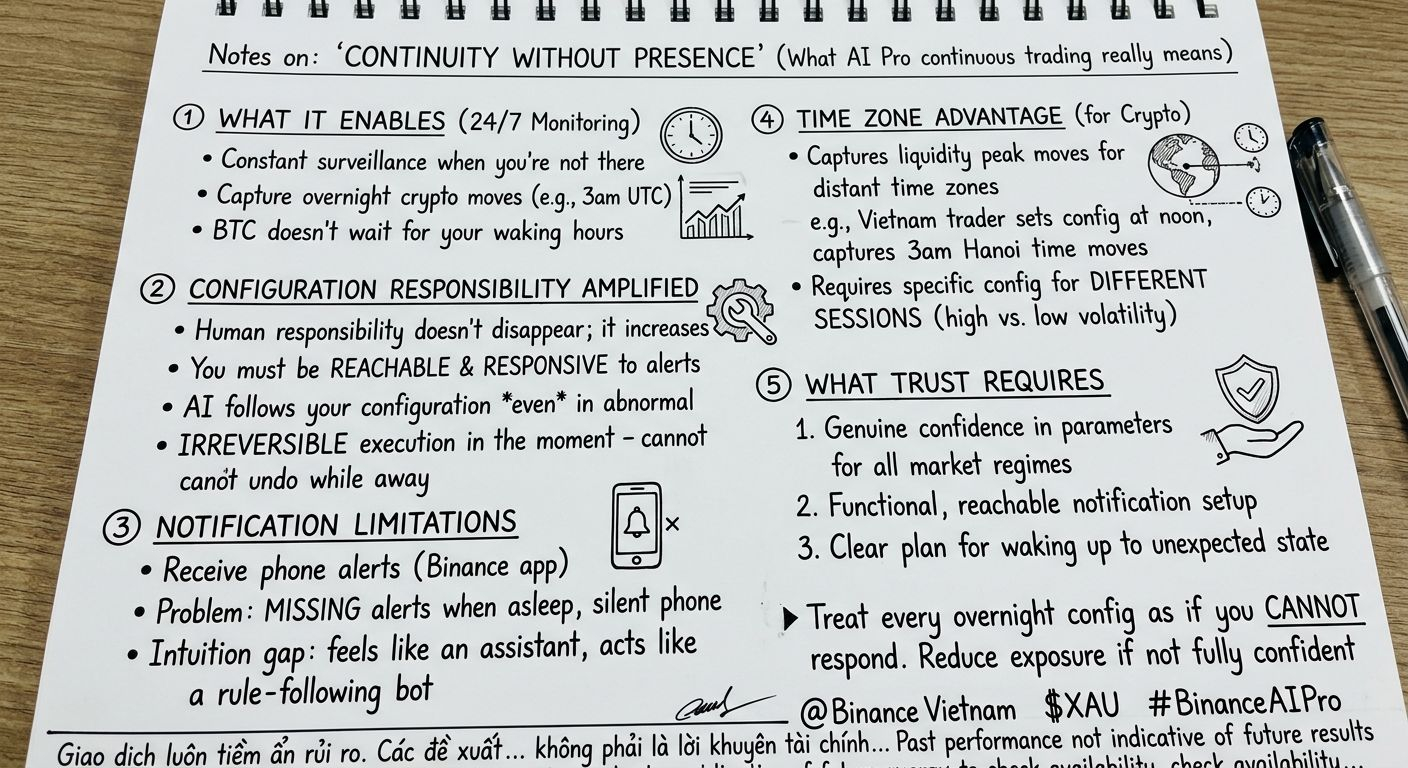 Notes on: 'CONTINUITY WITHOUT PRESENCE' (What AI Pro continuous trading really means)
① WHAT IT ENABLES (24/7 Monitoring)
• Constant surveillance when you're not there
• Capture overnight crypto moves (e.g., 3am UTC)
• BTC doesn't wait for your waking hours
② CONFIGURATION RESPONSIBILITY AMPLIFIED
• Human responsibility doesn't disappear; it increases
• You must be REACHABLE & RESPONSIVE to alerts
• AI follows your configuration *even* in abnormal
• IRREVERSIBLE execution in the moment – cannot
canơt undo while away
③ NOTIFICATION LIMITATIONS
• Receive phone alerts (Binance app)
• Problem: MISSING alerts when asleep, silent phone
• Intuition gap: feels like an assistant, acts like
a rule-following bot
④ TIME ZONE ADVANTAGE (for Crypto)
• Captures liquidity peak moves for
distant time zones
e.g., Vietnam trader sets config at noon,
captures 3am Hanoi time moves
• Requires specific config for DIFFERENT
SESSIONS (high vs. low volatility)
⑤ WHAT TRUST REQUIRES
1. Genuine confidence in parameters
for all market regimes
2. Functional, reachable notification setup
3. Clear plan for waking up to unexpected state
▶ Treat every overnight config as if you CANNOT
respond. Reduce exposure if not fully confident
@Binance Vietnam $XAU #BinanceAIPro
Giao dịch luôn tiềm ẩn rủi ro. Các đề xuất... không phải là lời khuyên tài chính... Past performance not indicative of future results
to check availability, check availability...